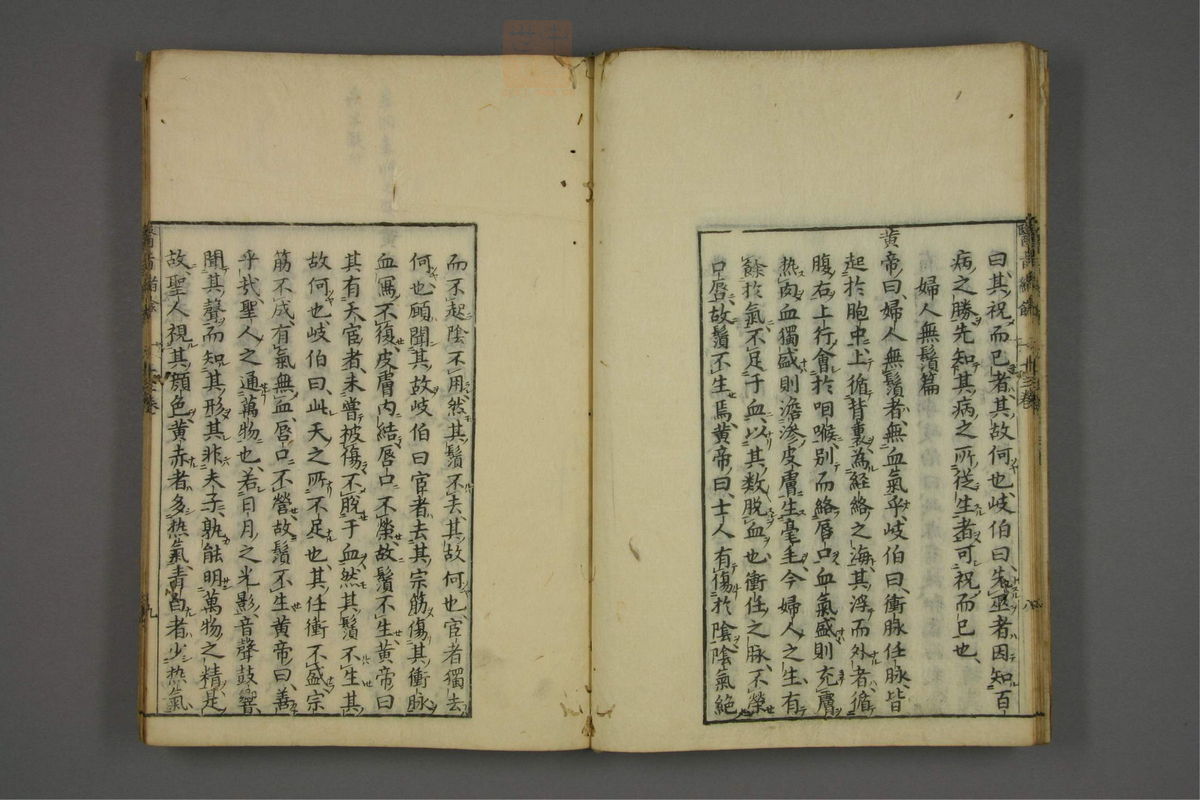 曰其祝而已者其故何也岐伯曰先巫者因知百
病之勝先知其病之所從生者可祝而已也
婦人無鬚篇
黄帝曰婦人無鬚者無血氣乎岐伯曰衝脉任脉皆
起於胞中上循背裏為經絡之海其浮而外者循
腹右上行會於咽喉別而絡唇口血氣盛則充膚
热肉血獨盛則澹滲皮膚生毫毛今婦人之生有
餘於氣不足于血以其數脱血也衝任之脉不榮
口唇故鬚不生焉黄帝曰士人有傷於陰陰氣絶
而不起陰不用然其鬚不去其故何也宦者獨去
何也願聞其故岐伯曰宦者去其宗筋傷其衝脉
血寫不復皮膚内結唇口不榮故鬚不生黄帝曰
其有天宦者未嘗被傷不脱于血然其鬚不生其
故何也岐伯曰此天之所不足也其任衝不盛宗
筋不成有氣無血唇口不營故鬚不生黄帝曰善
乎哉聖人之通萬物也若日月之光影音聲鼓響
聞其聲而知其形其非夫子孰能明萬物之精是
故聖人視其顔色黄赤者多热氣青白者少热氣
九